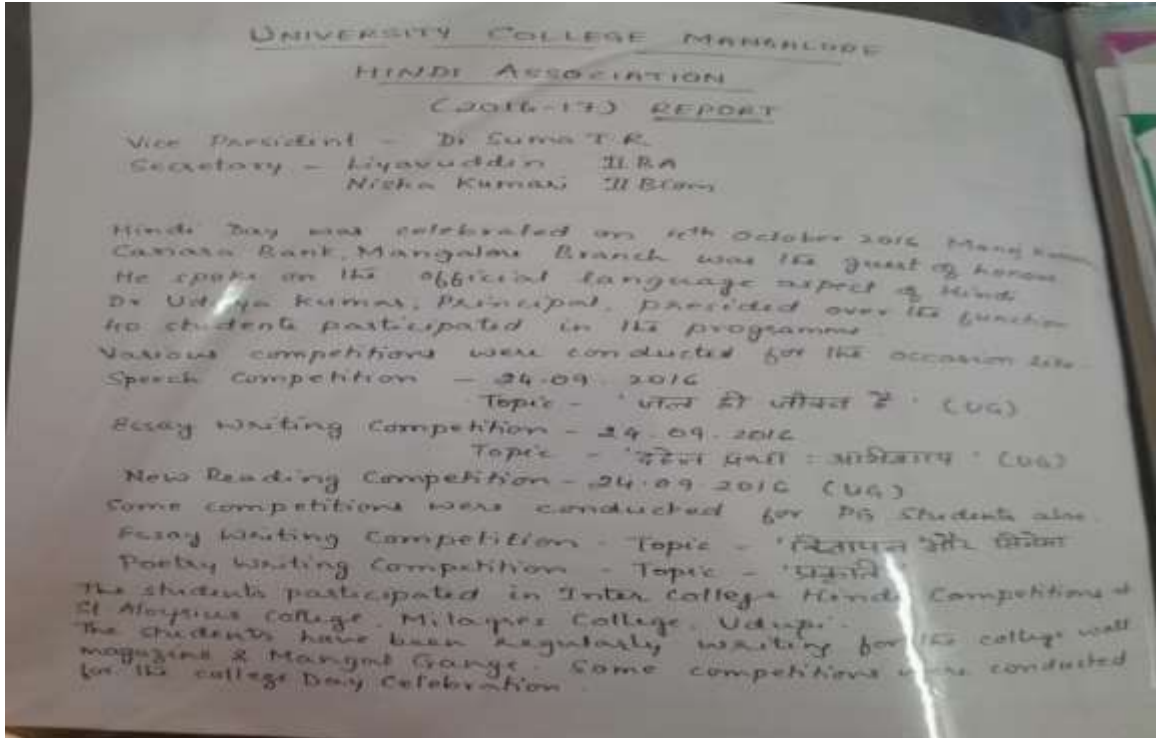 UNIVERSITY COLLEGE MANGALORE
HINDI ASSOCIATION
(2016-17) REPORT
Vice President - Dr Suma T.R.
Secretary - Liyavuddin II BA
Nisha Kumari II BCom
Hindi Day was celebrated on October 2016 Manoj Kumar,
Canara Bank, Mangalore Branch was the guest of honour
He spoke on the official language aspect of Hindi
Dr Udaya Kumar, Principal, presided over the function
40 students participated in the programme.
Various competitions were conducted for the occasion like.
Speech Competition - 24.09.2016
Topic - 'जल ही जीवन है' (UG)
Essay Writing Competition - 24.09.2016
Topic - ' : ' (UG)
News Reading Competition - 24.09.2016 (UG)
Some competitions were conducted for PG Students also.
Essay Writing Competition - Topic - 'विज्ञापन और सिनेमा
Poetry Writing Competition - Topic - 'प्रकृति'
The students participated in Inter College Hindi Competitions at
St Aloysius College, Milagres College, Udupi.
The students have been regularly writing for the college wall
magazine & Mangal Gange. Some competitions were conducted
for the college Day Celebration.